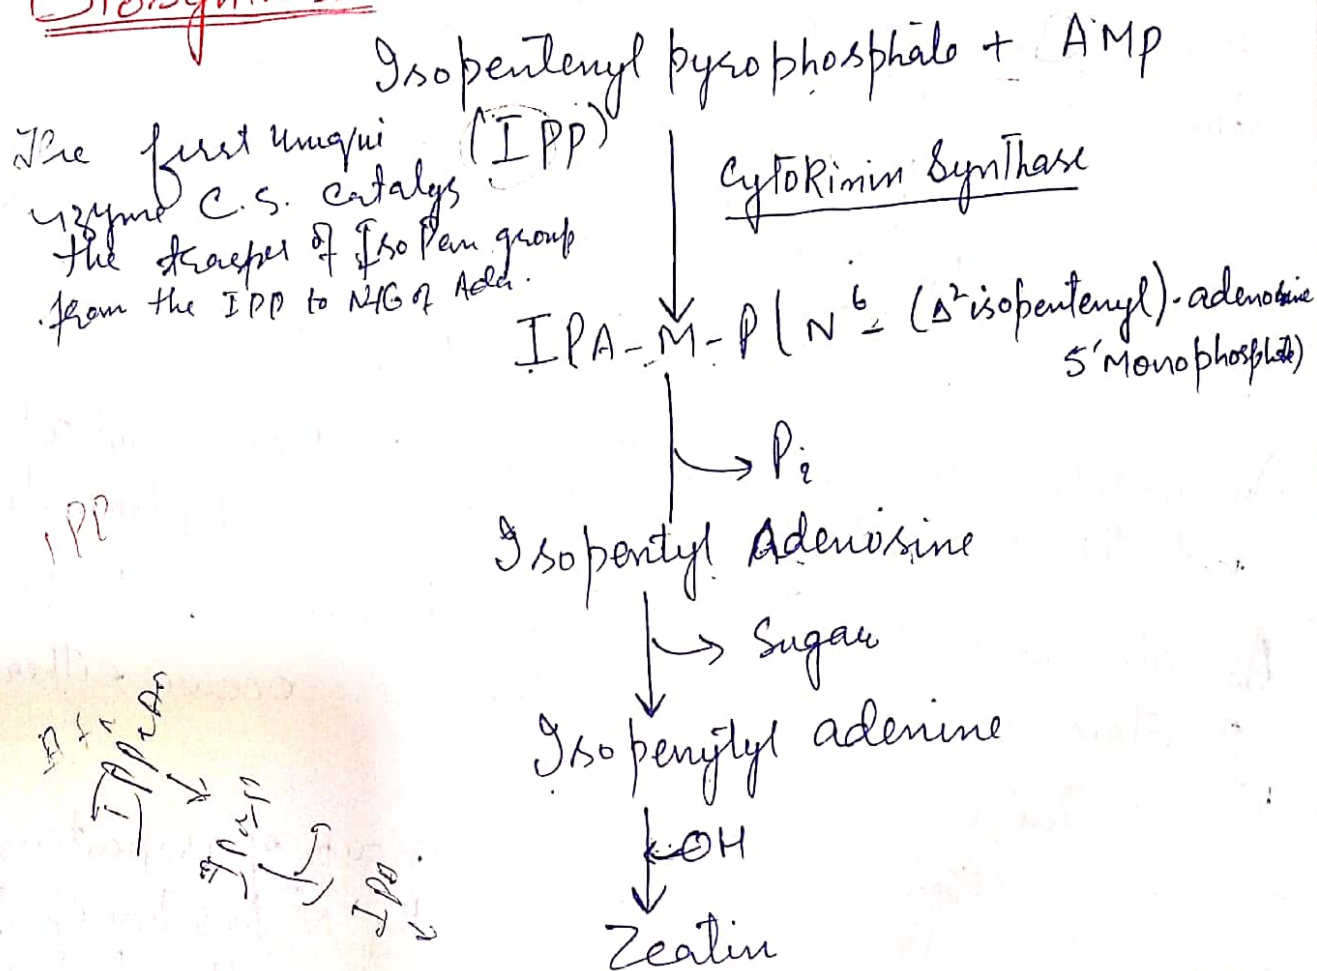 Isopentenyl pyrophosphate + AMP
(IPP)
The first uniqui
C.S. catalys
the of Iso Pen group
from the IPP to of
Cytokinin Synthase
IPA-M-P (N6- (Δ2 isopentenyl)-adenosine
5' Monophosphate)
Pi
Isopentyl Adenosine
Sugar
Isopenytyl adenine
OH
Zeatin
IPP